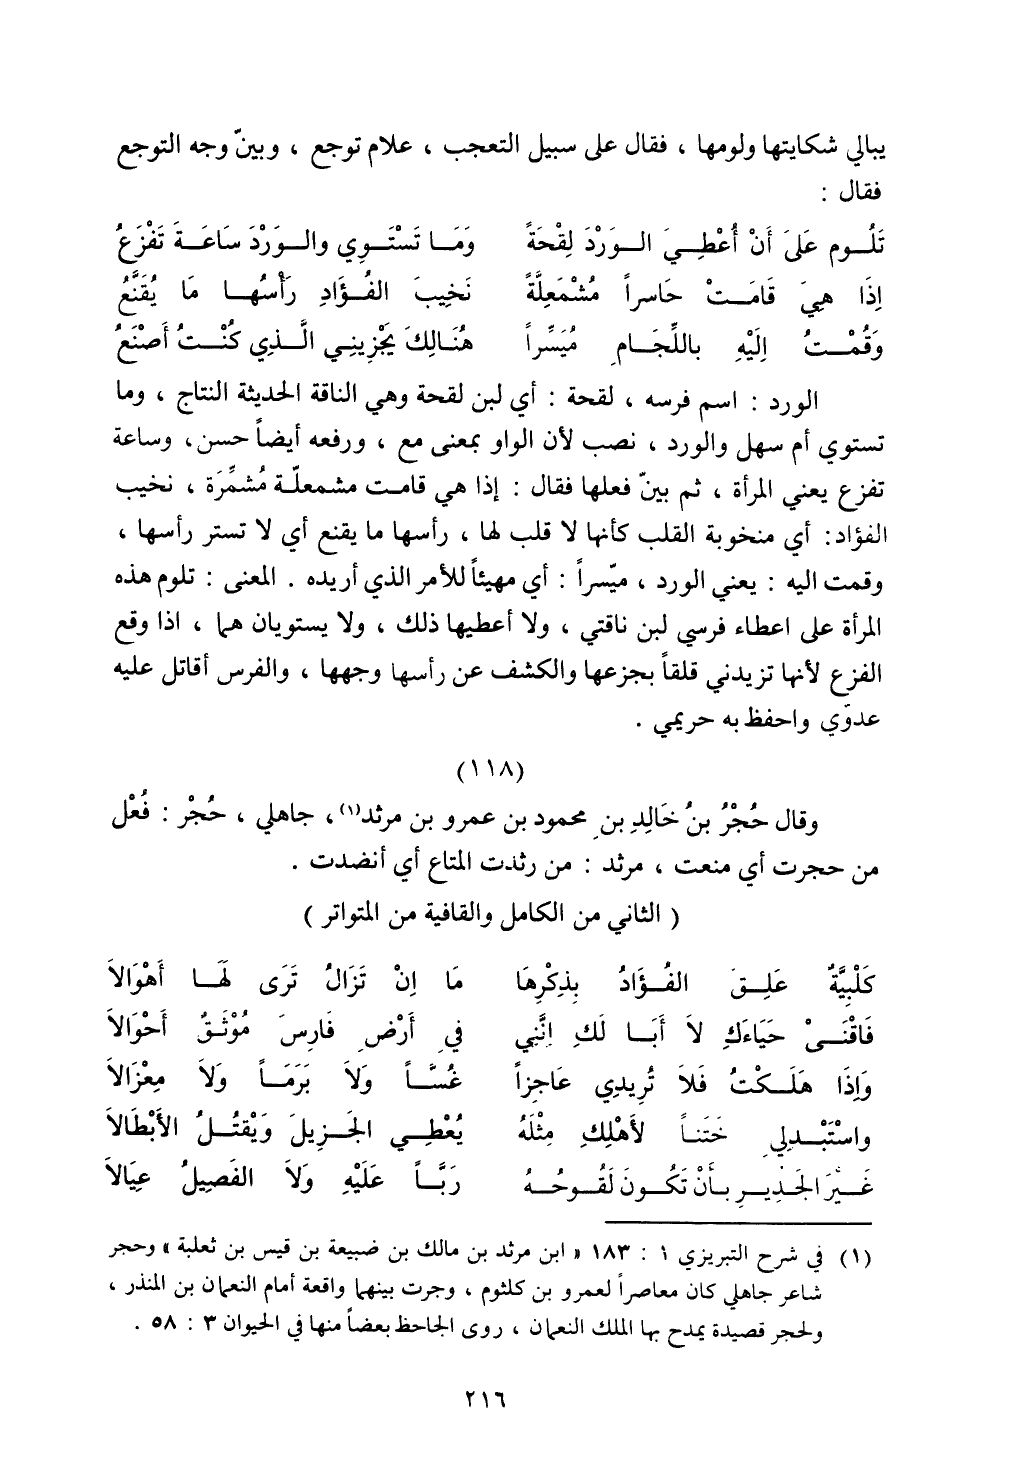 يبالي شكايتها ولومها ، فقال على سبيل التعجب ، علام توجع ، وبينّ وجه التوجع
فقال :
تَلُـوم عَلَى أَنْ أُعْطِـيَ الـوَرْدَ لِقْحَةً وَمَـا تَسْتَـوِي والـوَرْدَ سَاعَـةَ تَفْزَعُ
إِذَا هِيَ قَامَـتْ حَاسراً مُشْمَعِلَّةً نَخِيبَ الفُـؤَادِ رَأْسُهـا مَا يُقَنَّعُ
وَقُمْـتُ إِلَيْهِ باللِّجَـامِ مُيَسِّراً هُنَـالِكَ يَجْزِينِـي الَّـذِي كُنْـتُ أصْنَعُ
الورد : اسم فرسه ، لقحة : أي لبن لقحة وهي الناقة الحديثة النتاج ، وما
تستوي أم سهل والورد ، نصب لأن الواو بمعنى مع ، ورفعه أيضاً حسن، وساعة
تفزع يعني المرأة ، ثم بينّ فعلها فقال : إذا هي قامت مشمعلّة مُشمِّرَة ، نخيب
الفؤاد: أي منخوبة القلب كأنها لا قلب لها ، رأسها ما يقنع أي لا تستر رأسها ،
وقمت اليه : يعني الورد ، ميّسراً : أي مهيئاً للأمر الذي أريده . المعنى : تلوم هذه
المرأة على اعطاء فرسي لبن ناقتي ، ولا أعطيها ذلك ، ولا يستويان هما ، اذا وقع
الفزع لأنها تزيدني قلقاً بجزعها والكشف عن رأسها وجهها ، والفرس أقاتل عليه
عدوّي واحفظ به حريمي .
(١١٨)
وقال حُجْرُ بنُ خَالِدِ بنِ محمود بن عمرو بن مرثد(١)، جاهلي ، حُجْر : فُعْل
من حجرت أي منعت ، مرثد : من رثدت المتاع أي أنضدت .
( الثاني من الكامل والقافية من المتواتر )
كَلْبِيَّةٌ عَلِـقَ الفُـؤَادُ بِذِكْرِهَا مَا اِنْ تَزَالُ تَرَى لَهَـا أَهْوَالاَ
فَاقْنَـيْ حَيَاءَكِ لاَ أَبَـا لَكِ اِنَّنِي فِي أَرْضِ فَارِسَ مُوْثَـقٌ أَحْوَالاَ
وَاِذَا هَلَـكْتُ فَلاَ تُرِيدِي عَاجِزاً غُسّـاً وَلاَ بَرَمَـاً وَلاَ مِعْزَالاَ
واسْتَبْـدِلِي خَتَنـاً لأَهْلِكِ مِثْلَهُ يُعْطِـي الجَـزِيلَ وَيَقْتُـلُ الأَبْطَالاَ
غَـيْرَ الجَـدِيـرِ بـأَنْ تَكُـونَ لَقُـوحُـهُ رَبَّـاً عَلَيْهِ وَلاَ الفَصِيلُ عِيَالاَ
(١) في شرح التبريزي ١ : ١٨٣ « ابن مرثد بن مالك بن ضبيعة بن قيس بن ثعلبة » وحجر
شاعر جاهلي كان معاصراً لعمرو بن كلثوم ، وجرت بينهما واقعة أمام النعمان بن المنذر ،
ولحجر قصيدة يمدح بها الملك النعمان ، روى الجاحظ بعضاً منها في الحيوان ٣ : ٥٨ .
٢١٦